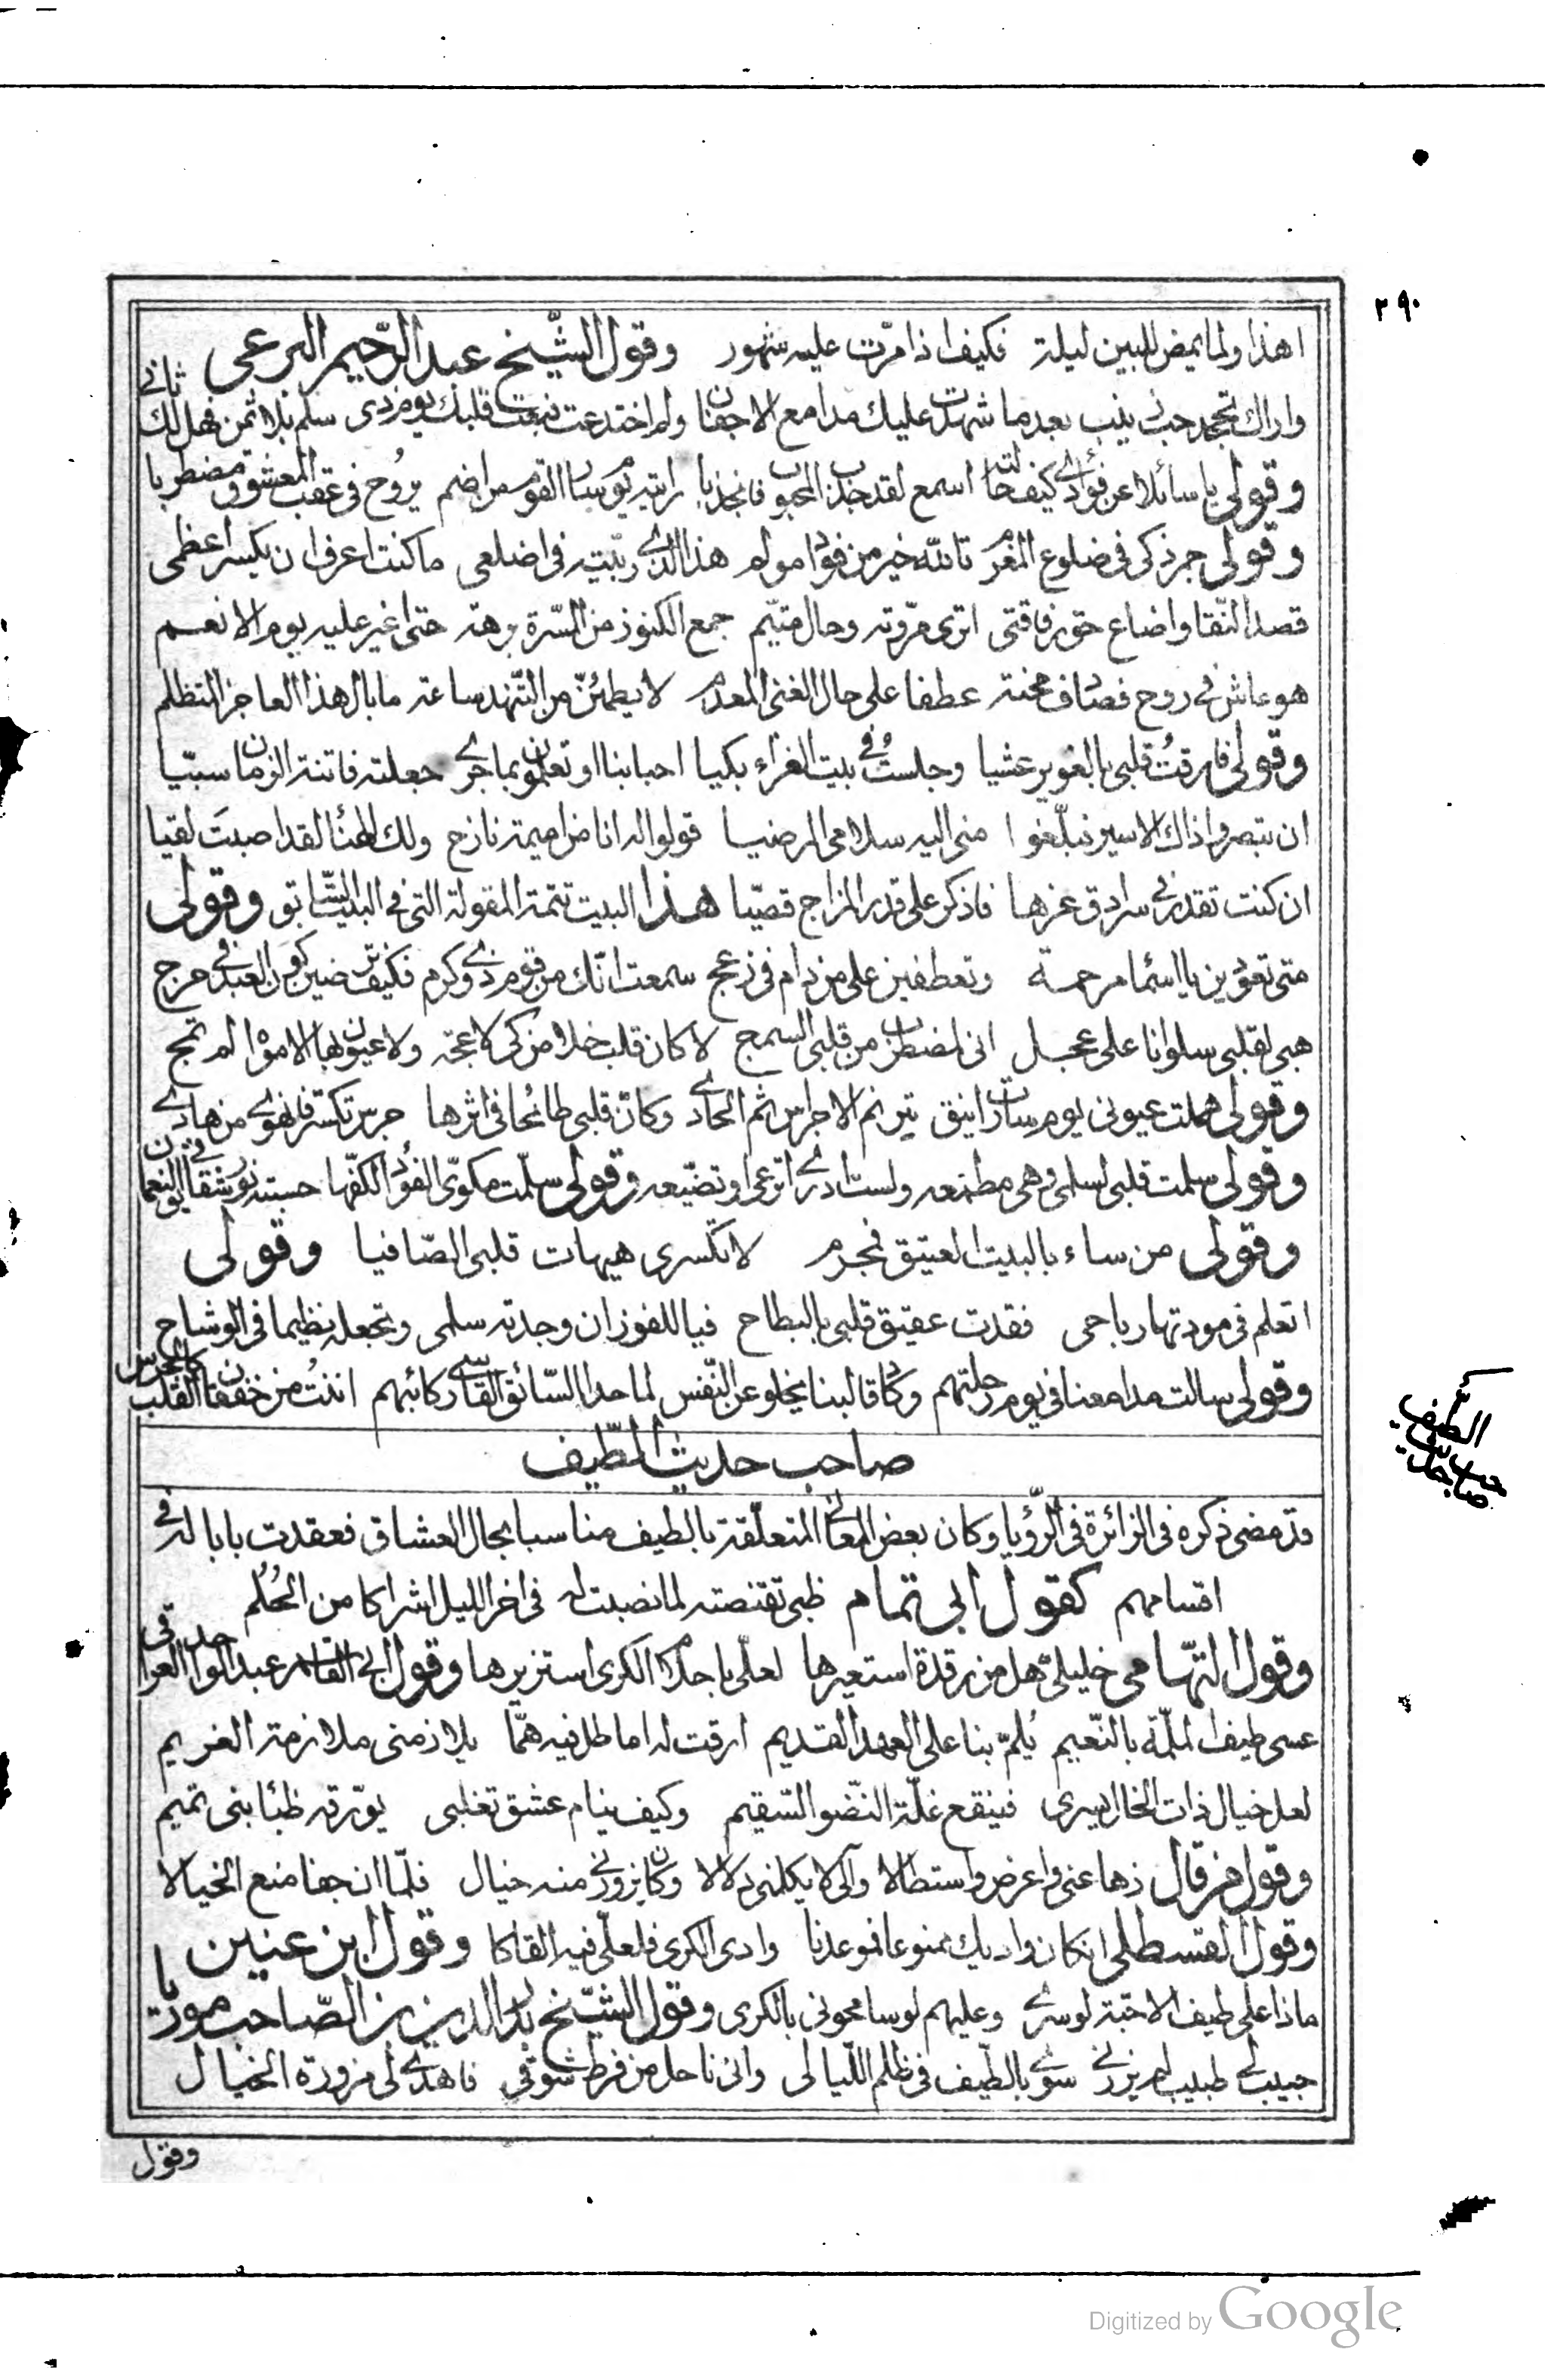 ٢٩٠
اهذا ولما يمض للبين ليلة فكيف اذا مرّت عليه شهور وقول الشّيخ عبد الرّحيم البرعى
واراك تجحد حب زينب بعد ما شهدت عليك مدامع الاجفان ولم اختدعت فبعت قلبك يوم ذى سلم بلا ثمن فهل لك ثانى
وقولى يا سائلا عن فؤادى كيف حالته اسمع لقد جذب المحبوب فانجذبا رايته يوم سار القوم من اضم يروح فى عقب المعشوق مضطربا
وقولى جمر ذكى فى ضلوع المغرم تالله خير من فؤاد مولم هذا الذى ربّيته فى اضلعى ما كنت اعرف ان يكسر اعظمى
قصد النّقا واضاع حق رفاقتى اترى مروّته وحال متيّم جمع الكنوز من المسّرة برهة حتى اغير عليه يوم الانعم
هو عاش فى روح فصادف محنة عطفا على حال الغنى المعدم لا يطمئنّ من التّنهد ساعة ما بال هذا العاجز المتظلم
وقولى فارقتُ قلبى بالغوير عشيا وجلستُ فى بيت العزاء بكيا احبابنا او تعلمون بما جرى جعلته فاتنة الزمان سبيّا
ان تبصروا ذاك الاسير فبلّغوا منى اليه سلامى المرضيا قولوا له انا من اميمة نازح ولك الهنأ لقد اصبتَ لقيا
ان كنت تقدر فى سرادق عزها فاذكر على قدر المزاج قصيّا هذا البيت تتمة المقولة التى فى البيت السّابق وقولى
متى تعودين يا اسما مرحمة وتعطفين على من دام فى زعج سمعت انّك من قوم ذوى كرم فكيف ترضين كون العبد فى حرج
هبى لقلبى سلوانا على عجل انى لمضطرب من قلبى السمج لا كان قلب خلا من ذكر لاعجة ولا عيون بها الامواه لم تمج
وقولى هملت عيونى يوم سارت اينق بترنم الاجراس ثم الحادى وكانّ قلبى طائحا فى اثرها جرس تكسّر فهوى من هادى
وقولى سلمت قلبى لسلمى وهى مطمعه ولست ادرى اترعى او تضيّعه وقولى سلّمت مكوىّ الفؤاد لكفّها حسبته نور شقائق النعمان
وقولى من ساء بالبيت العتيق فمجرم لا تكسرى هيهات قلبى الصّافيا وقولى
اتعلم فى مودتها رباحى فقدت عقيق قلبى بالبطاح فيا للفوز ان وجدته سلمى وتجعله نظيما فى الوشاح
وقولى سالت مدامعنا فى يوم رحلتهم وكاد قالبنا يخلو عن النّفس لما حدا السّائق القاسى ركائبهم اننتُ من خفقان القلب كالجرس
صاحب حديث الطّيف
قد مضى ذكره فى الزائرة فى الرّؤيا وكان بعض المعانى المتعلّقة بالطيف مناسبا بحال العشاق فعقدت بابا له فى
اقسامهم كقول ابى تمام ظبى تقنصته لما نصبت له فى اخر الليل اشراكا من الحُلُم
وقول التّهامى خليلىّ هل من رقدة استعيرها لعلّى باحلام الكرى استزيرها وقول ابى القاسم عبد الواحد العراقى
عسى طيف الملّمة بالنّعيم يُلمّ بنا على العهد القديم ارقت له اماطل فيه همّا يلازمنى ملازمة الغريم
لعل خيال ذات الخال يسرى فينقع غلّة النّضو السّقيم وكيف ينام عشق تغلبى يورّقه ظبأ بنى تميم
وقول من قال زها عنى واعرض واستطالا وآلى لا يكلمنى دلالا وكان يزورنى منه خيال فلمّا ان جفا منع الخيالا
وقول القسطلى ان كان واديك ممنوعا فموعدنا وادى الكرى فلعلّى فيه القاكا وقول ابن عنين
ماذا على طيف الاحبّة لو سرى وعليهم لو سامحونى بالكرى وقول الشّيخ بدر الدين بن الصّاحب موريا
حبيب لى طبيب لم يزرنى سوى بالطّيف فى ظلم اللّيالى وانى ناحل من فرط شوقى فاهدى لى مزورة الخيال
وقول
الطّيف
صاحب حديث
Digitized by Google